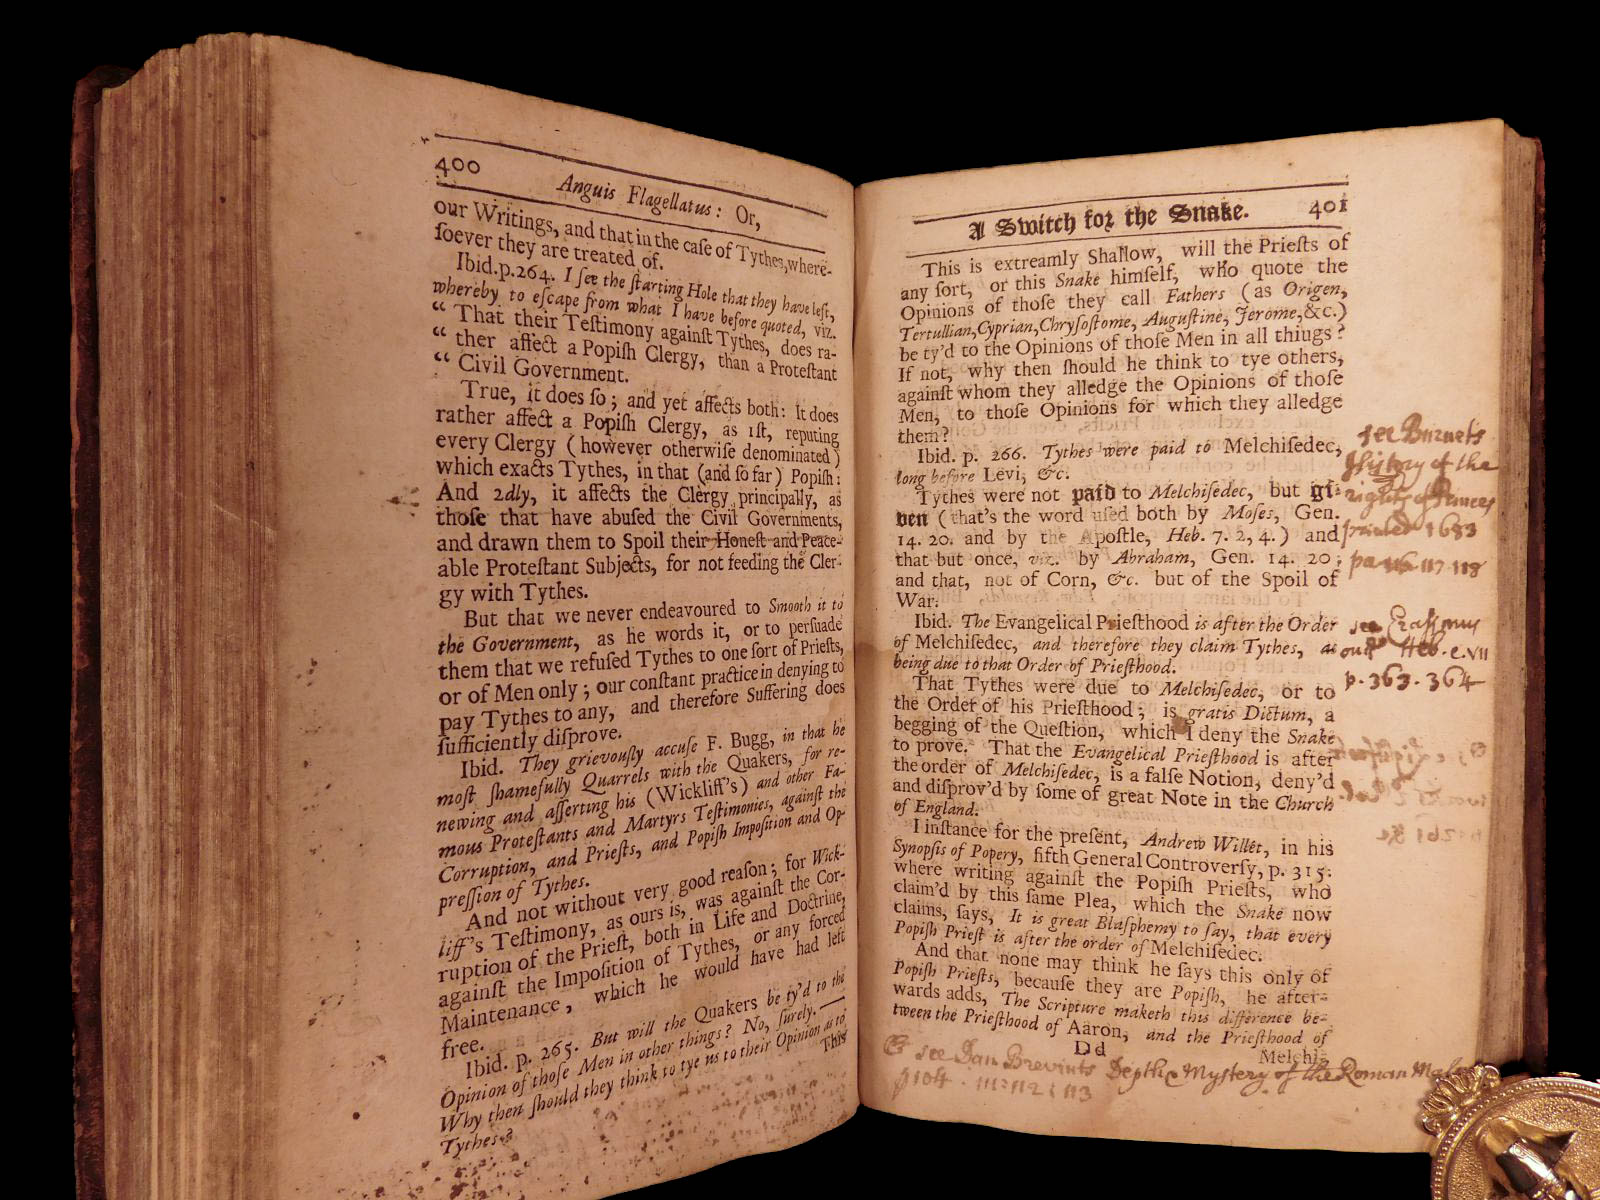 400
Anguis Flagellatus: Or,
our Writings, and that in the caſe of Tythes, where-
ſoever they are treated of.
Ibid. p. 264. I ſee the ſtarting Hole that they have left,
whereby to eſcape from what I have before quoted, viz.
“ That their Teſtimony againſt Tythes, does ra-
“ ther affect a Popiſh Clergy, than a Proteſtant
“ Civil Government.
True, it does ſo; and yet affects both: It does
rather affect a Popiſh Clergy, as 1ſt, reputing
every Clergy (however otherwiſe denominated)
which exacts Tythes, in that (and ſo far) Popiſh:
And 2dly, it affects the Clergy principally, as
thoſe that have abuſed the Civil Governments,
and drawn them to Spoil their Honeſt and Peace-
able Proteſtant Subjects, for not feeding the Cler-
gy with Tythes.
But that we never endeavoured to Smooth it to
the Government, as he words it, or to perſuade
them that we refuſed Tythes to one ſort of Prieſts,
or of Men only; our conſtant practice in denying to
pay Tythes to any, and therefore Suffering does
ſufficiently diſprove.
Ibid. They grievouſly accuſe F. Bugg, in that he
moſt ſhamefully Quarrels with the Quakers, for re-
newing and aſſerting his (Wickliff's) and other Fa-
mous Proteſtants and Martyrs Teſtimonies, againſt the
Corruption, and Prieſts, and Popiſh Impoſition and Op-
preſſion of Tythes.
And not without very good reaſon; for Wick-
liff's Teſtimony, as ours is, was againſt the Cor-
ruption of the Prieſt, both in Life and Doctrine,
againſt the Impoſition of Tythes, or any forced
Maintenance, which he would have had left
free.
Ibid. p. 265. But will the Quakers be ty'd to the
Opinion of thoſe Men in other things? No, ſurely. —
Why then ſhould they think to tye us to their Opinion as to
Tythes?
This
A Switch for the Snake. 401
This is extreamly Shallow, will the Prieſts of
any ſort, or this Snake himſelf, who quote the
Opinions of thoſe they call Fathers (as Origen,
Tertullian, Cyprian, Chryſoſtome, Auguſtine, Jerome, &c.)
be ty'd to the Opinions of thoſe Men in all thiugs?
If not, why then ſhould he think to tye others,
againſt whom they alledge the Opinions of thoſe
Men, to thoſe Opinions for which they alledge
them?
Ibid. p. 266. Tythes were paid to Melchiſedec,
long before Levi, &c.
Tythes were not paid to Melchiſedec, but gi-
ven (that's the word uſed both by Moſes, Gen.
14. 20. and by the Apoſtle, Heb. 7. 2, 4.) and
that but once, viz. by Abraham, Gen. 14. 20;
and that, not of Corn, &c. but of the Spoil of
War.
Ibid. The Evangelical Prieſthood is after the Order
of Melchiſedec, and therefore they claim Tythes, as
being due to that Order of Prieſthood.
That Tythes were due to Melchiſedec, or to
the Order of his Prieſthood; is gratis Dictum, a
begging of the Queſtion, which I deny the Snake
to prove. That the Evangelical Prieſthood is after
the order of Melchiſedec, is a falſe Notion, deny'd
and diſprov'd by ſome of great Note in the Church
of England.
I inſtance for the preſent, Andrew Willet, in his
Synopſis of Popery, fifth General Controverſy, p. 315:
where writing againſt the Popiſh Prieſts, who
claim'd by this ſame Plea, which the Snake now
claims, ſays, It is great Blaſphemy to ſay, that every
Popiſh Prieſt is after the order of Melchiſedec.
And that none may think he ſays this only of
Popiſh Prieſts, becauſe they are Popiſh, he after-
wards adds, The Scripture maketh this difference be-
tween the Prieſthood of Aaron, and the Prieſthood of
Dd
Melchi-
see Burnets
History of the
rights of Princes
printed 1683
pa 116 117 118
see Erasmus
on Heb. c. VII
p. 363. 364
& see Dan Brevints Depth & Mystery of the Roman Mass
p 104 . 111: 112: 113